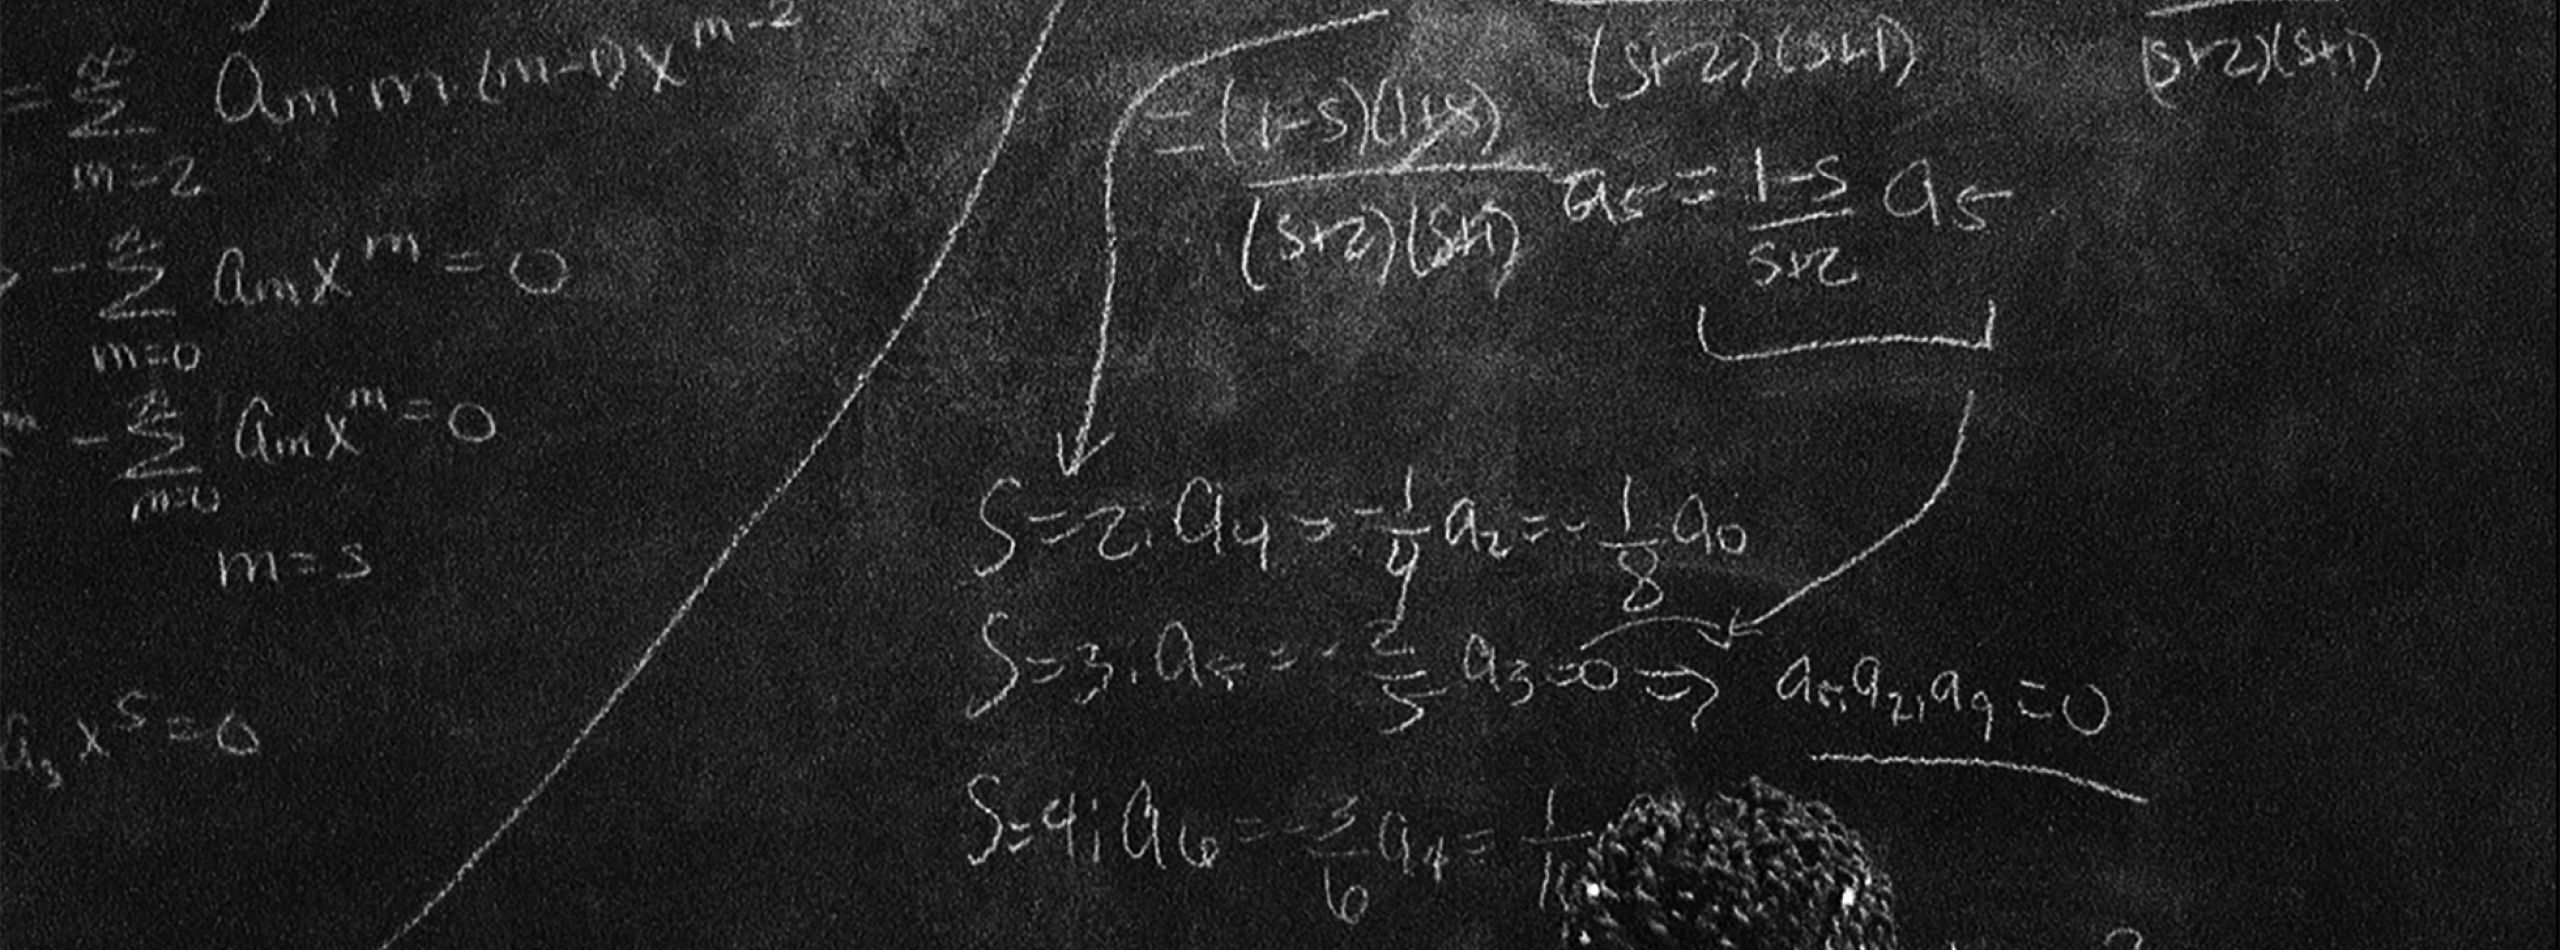 = ∑ m=2 ∞ aₘ·m·(m-1)x^(m-2)
- ∑ m=0 ∞ aₘx^m = 0
m - ∑ m=0 ∞ aₘx^m = 0
m=s
aₛ x^s = 0
(s+2)(s+1) (s+2)(s+1)
= (1-s)(1+s)/(s+2)(s+1) aₛ = 1-s/s+2 aₛ
S=2; a₄ = -1/4 a₂ = -1/8 a₀
S=3; a₅ = -2/5 a₃=0 ⇒ a₅, a₇, a₉ = 0
S=4; a₆ = -3/6 a₄ = 1/1